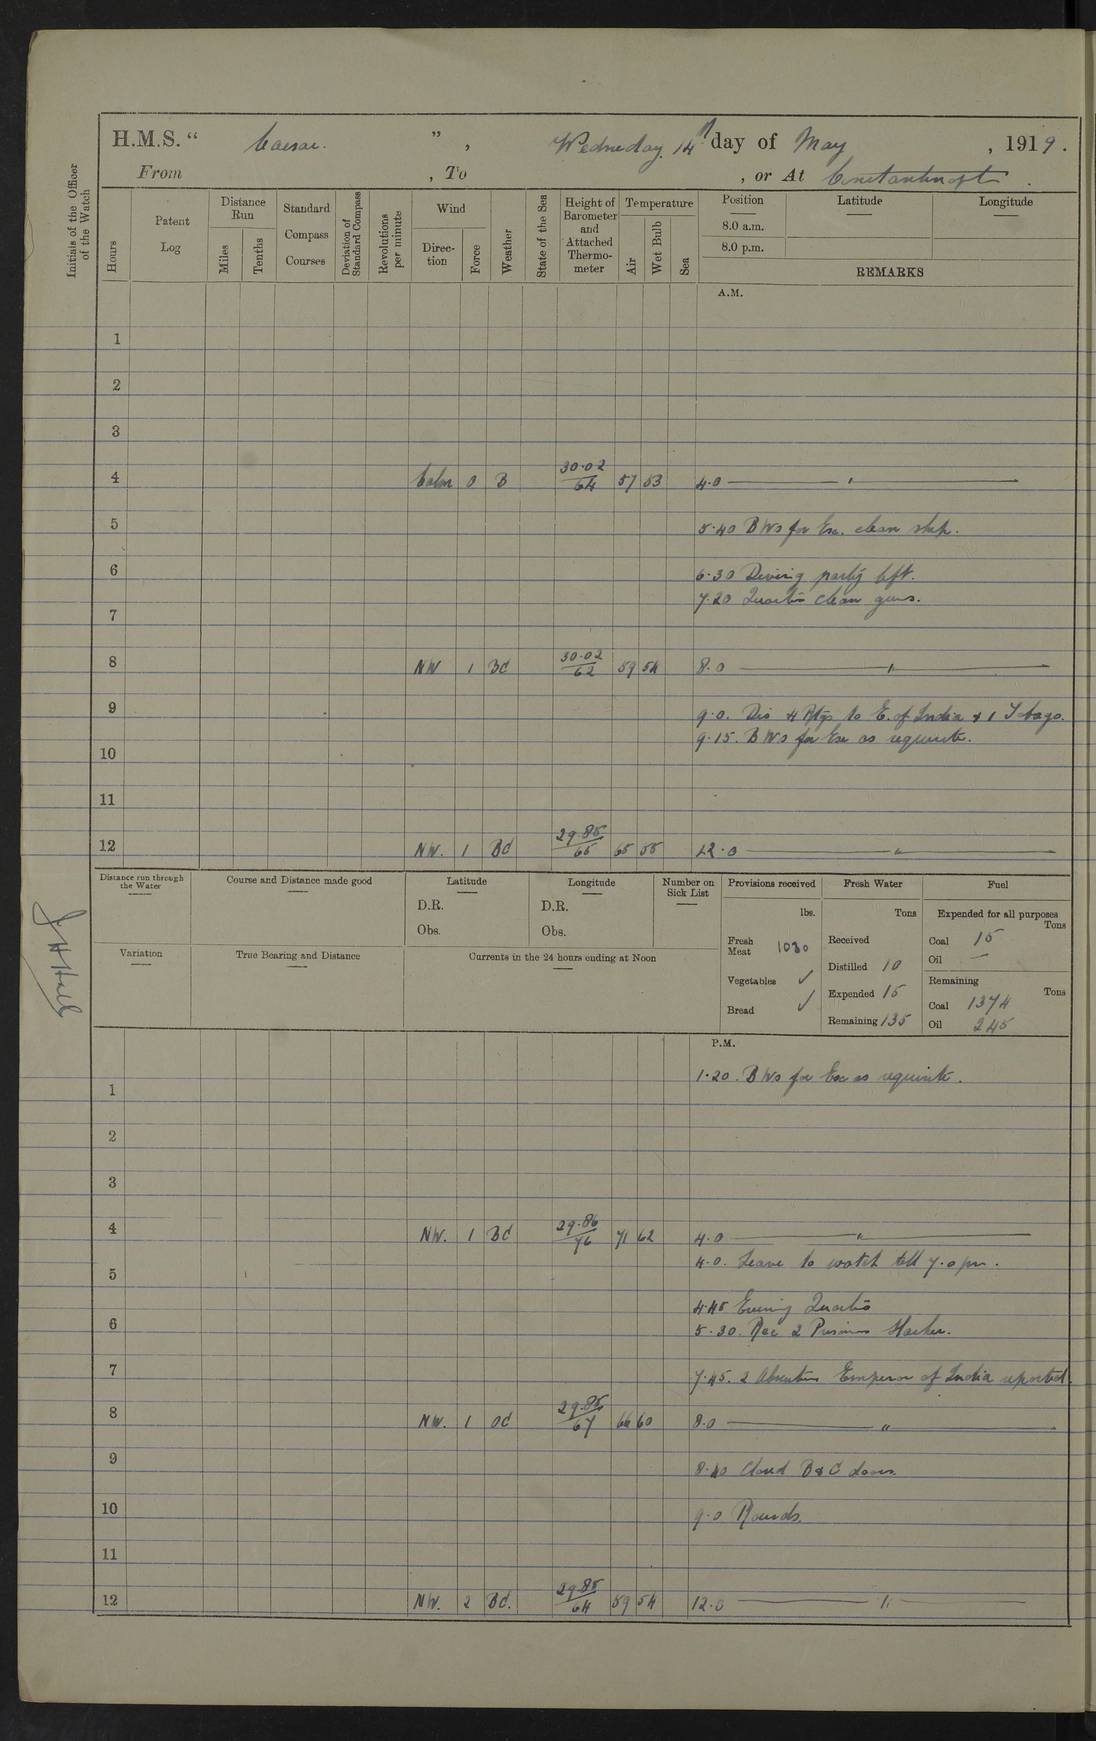 H.M.S. " Caesar. " , Wednesday. 14th day of May , 1919.
From , To , or At Constantinople .
Initials of the Officer of the Watch
Hours
Patent Log
Distance Run
Miles
Tenths
Standard Compass Courses
Deviation of Standard Compass
Revolutions per minute
Wind
Direction
Force
Weather
State of the Sea
Height of Barometer and Attached Thermometer
Temperature
Air
Wet Bulb
Sea
Position Latitude Longitude
8.0 a.m.
8.0 p.m.
REMARKS
A.M.
1
2
3
4 Calm 0 B 30.02/64 57 53 4.0 "
5 5.40 BWs for Exc. clean ship.
6 6.30 Diving party left.
7.20 Quarters clean guns.
7
8 NW 1 BC 30.02/62 59 54 8.0 "
9 9.0. Dis 4 Rtgs to E. of India & 1 Tobago.
9.15. BWs for Exc as requisite.
10
11
12 NW. 1 BC 29.85/65 65 55 12.0 "
Distance run through the Water
Course and Distance made good
Latitude
D.R.
Obs.
Longitude
D.R.
Obs.
Number on Sick List
Provisions received
lbs.
Fresh Meat 1030
Vegetables ✓
Bread ✓
Fresh Water
Tons
Received
Distilled 10
Expended 15
Remaining 135
Fuel
Expended for all purposes
Tons
Coal 15
Oil —
Remaining
Tons
Coal 1374
Oil 245
Variation
True Bearing and Distance
Currents in the 24 hours ending at Noon
J H Hall
P.M.
1.20. BWs for Exc as requisite.
1
2
3
4 NW. 1 BC 29.86/76 71 62 4.0 "
4.0. Leave to watch till 7.0 pm.
5
4.45 Evening Quarters
6 5.30. Rec 2 Prisoners
7 7.45. 2 Absentees Emperor of India reported.
8 NW. 1 OC 29.85/67 66 60 8.0 "
9 8.40 Closed B & C doors.
10 9.0 Rounds.
11
12 NW. 2 BC. 29.85/64 59 54 12.0 "